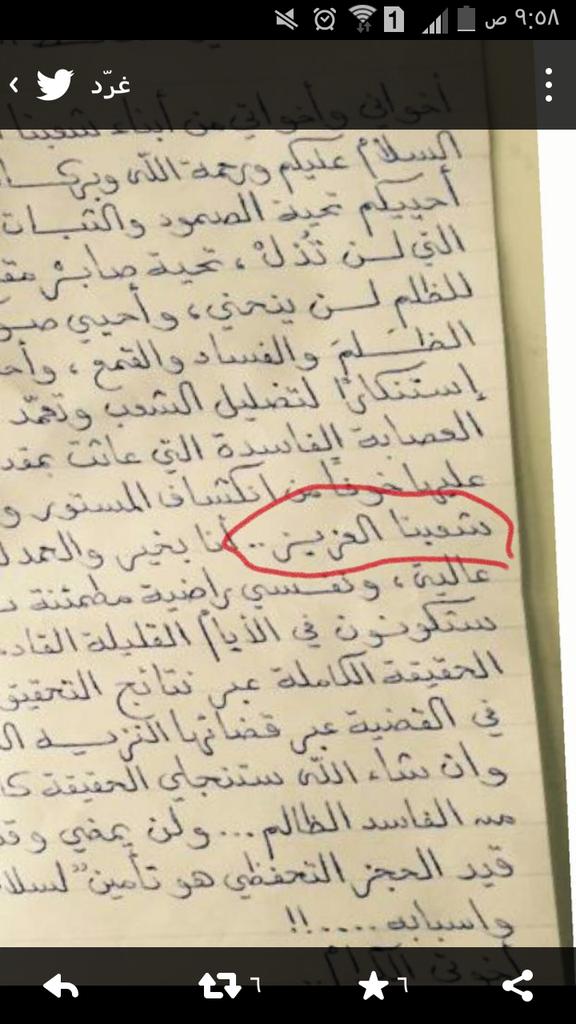 ٩:٥٨ ص
1
غرّد
أخواني وأخواتي من أبناء شعبنا
السلام عليكم ورحمة الله
أحييكم تحية الصمود والثبات
التي لن تُذلْ، تحية صابرْ
للظلم لن ينحني، وأحيي
الظلم والفساد والقمع،
إستنكارًا لتضليل الشعب وتعمّد
العصابة الفاسدة التي عاثت
عليها خوفًا من انكشاف المستور و
شعبنا العزيز.. أنا بخير والحمد
عالية، ونفسي راضية مطمئنة
ستكونون في الأيام القليلة
الحقيقة الكاملة عبر نتائج التحقيق
في القضية عبر قضائها النزيه
وان شاء الله ستنجلي الحقيقة
من الفاسد الظالم... ولن يمضي
قيد الحجز التحفظي هو تأمين
واسبابه.....!!
٦
٦